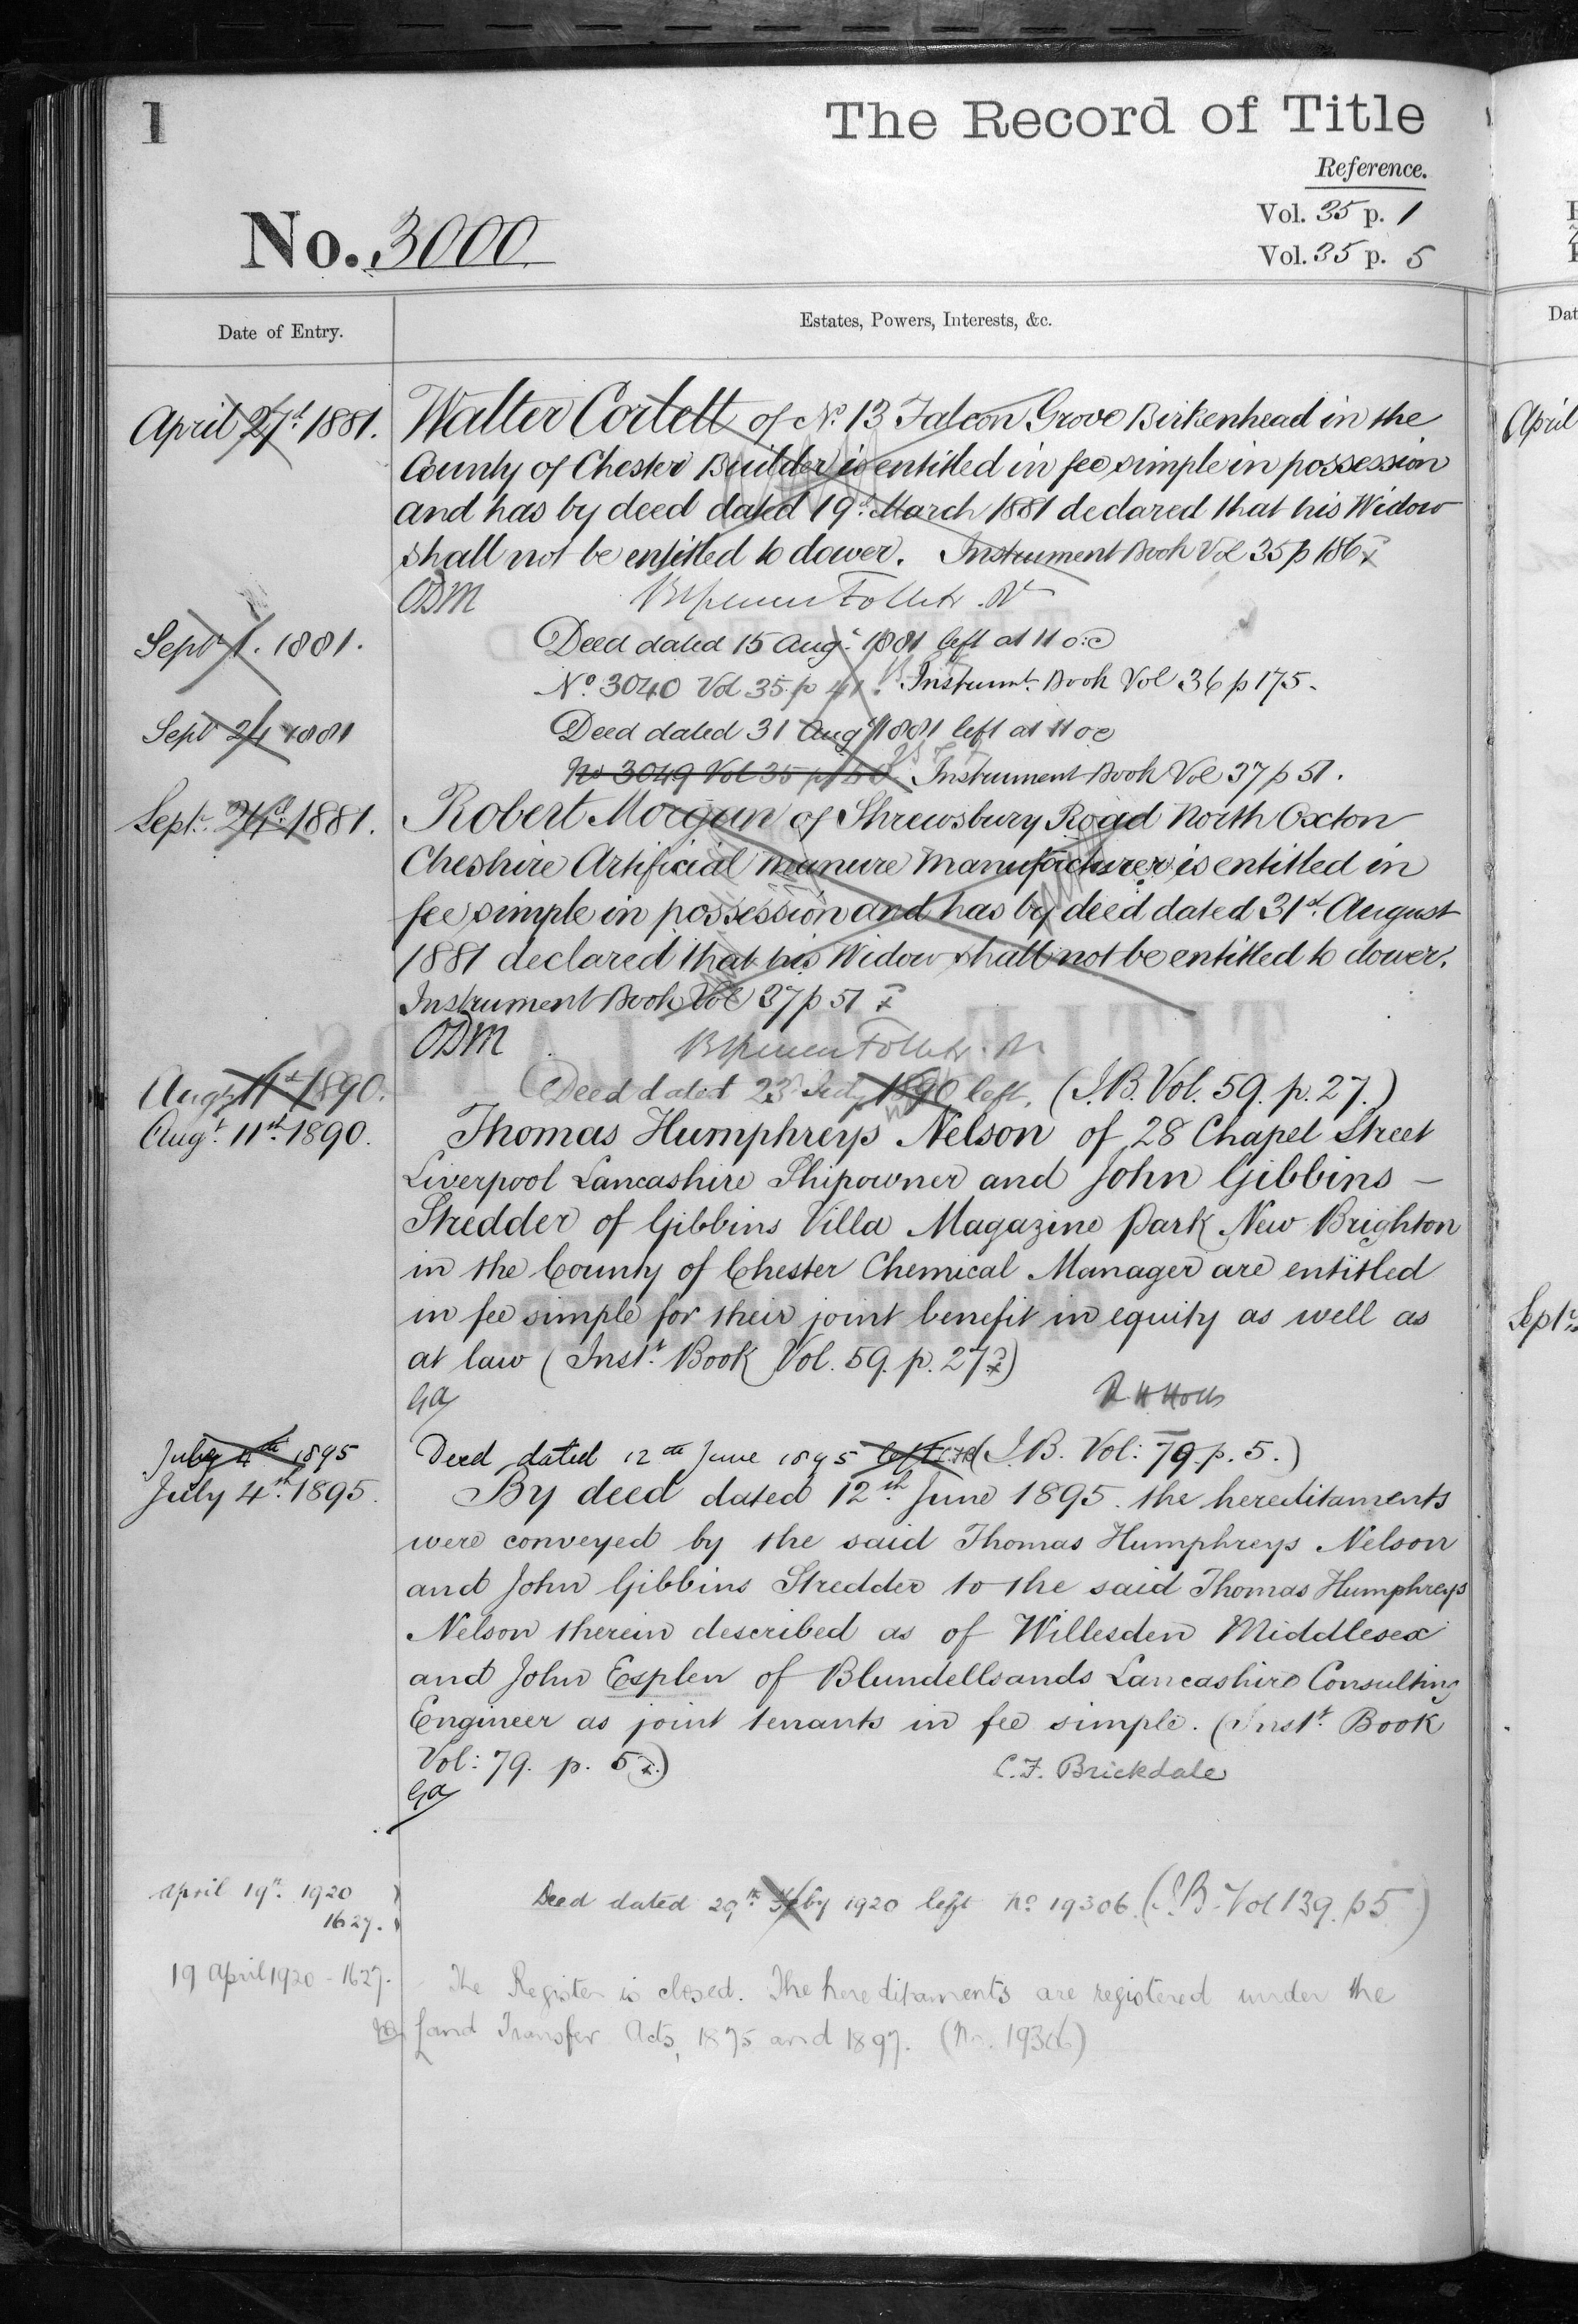 1
The Record of Title
Reference.
Vol. 35 p. 1
No. 3000
Vol. 35 p. 5
Date of Entry.
Estates, Powers, Interests, &c.
Dat
April 27th 1881. Walter Corlett of No. 13 Falcon Grove Birkenhead in the
April
County of Chester Builder is entitled in fee simple in possession
and has by deed dated 19th March 1881 declared that his Widow
shall not be entitled to dower. Instrument Book Vol 35 p 186
ODM
Sept 1. 1881. Deed dated 15 Augt 1881 left at 11 o.c
No. 3040 Vol 35. p 41. Instrumt. Book Vol 36 p 175.
Sept 24 1881 Deed dated 31 Augt 1881 left at 11 oc
No 3049 Vol 35 p 50 Instrument Book Vol 37 p 51.
Sept. 24th 1881. Robert Morgan of Shrewsbury Road North Oxton
Cheshire Artificial manure Manufacturer is entitled in
fee simple in possession and has by deed dated 31st August
1881 declared that his Widow shall not be entitled to dower.
Instrument Book Vol 37 p 51
ODM
Augt 11th 1890. Deed dated 23rd July 1890 left. (I.B. Vol. 59. p. 27.)
Augt. 11th 1890. Thomas Humphreys Nelson of 28 Chapel Street
Liverpool Lancashire Shipowner and John Gibbins –
Stredder of Gibbins Villa Magazine Park New Brighton
in the County of Chester Chemical Manager are entitled
in fee simple for their joint benefit in equity as well as
Sept.
at law (Inst. Book Vol. 59. p. 27)
Ga
July 4th 1895 Deed dated 12th June 1895 left (I.B. Vol: 79. p. 5.)
July 4th 1895. By deed dated 12th June 1895. the hereditaments
were conveyed by the said Thomas Humphreys Nelson
and John Gibbins Stredder to the said Thomas Humphreys
Nelson therein described as of Willesden Middlesex
and John Esplen of Blundellsands Lancashire Consulting
Engineer as joint tenants in fee simple. (Inst. Book
Vol: 79. p. 5) C.F. Brickdale
Ga
April 19th. 1920 Deed dated 29th Feby 1920 left No. 19306. (I.B. Vol 139. p5)
1627.
19 April 1920 - 1627. The Register is closed. The hereditaments are registered under the
Land Transfer Acts, 1875 and 1897. (No. 19306)